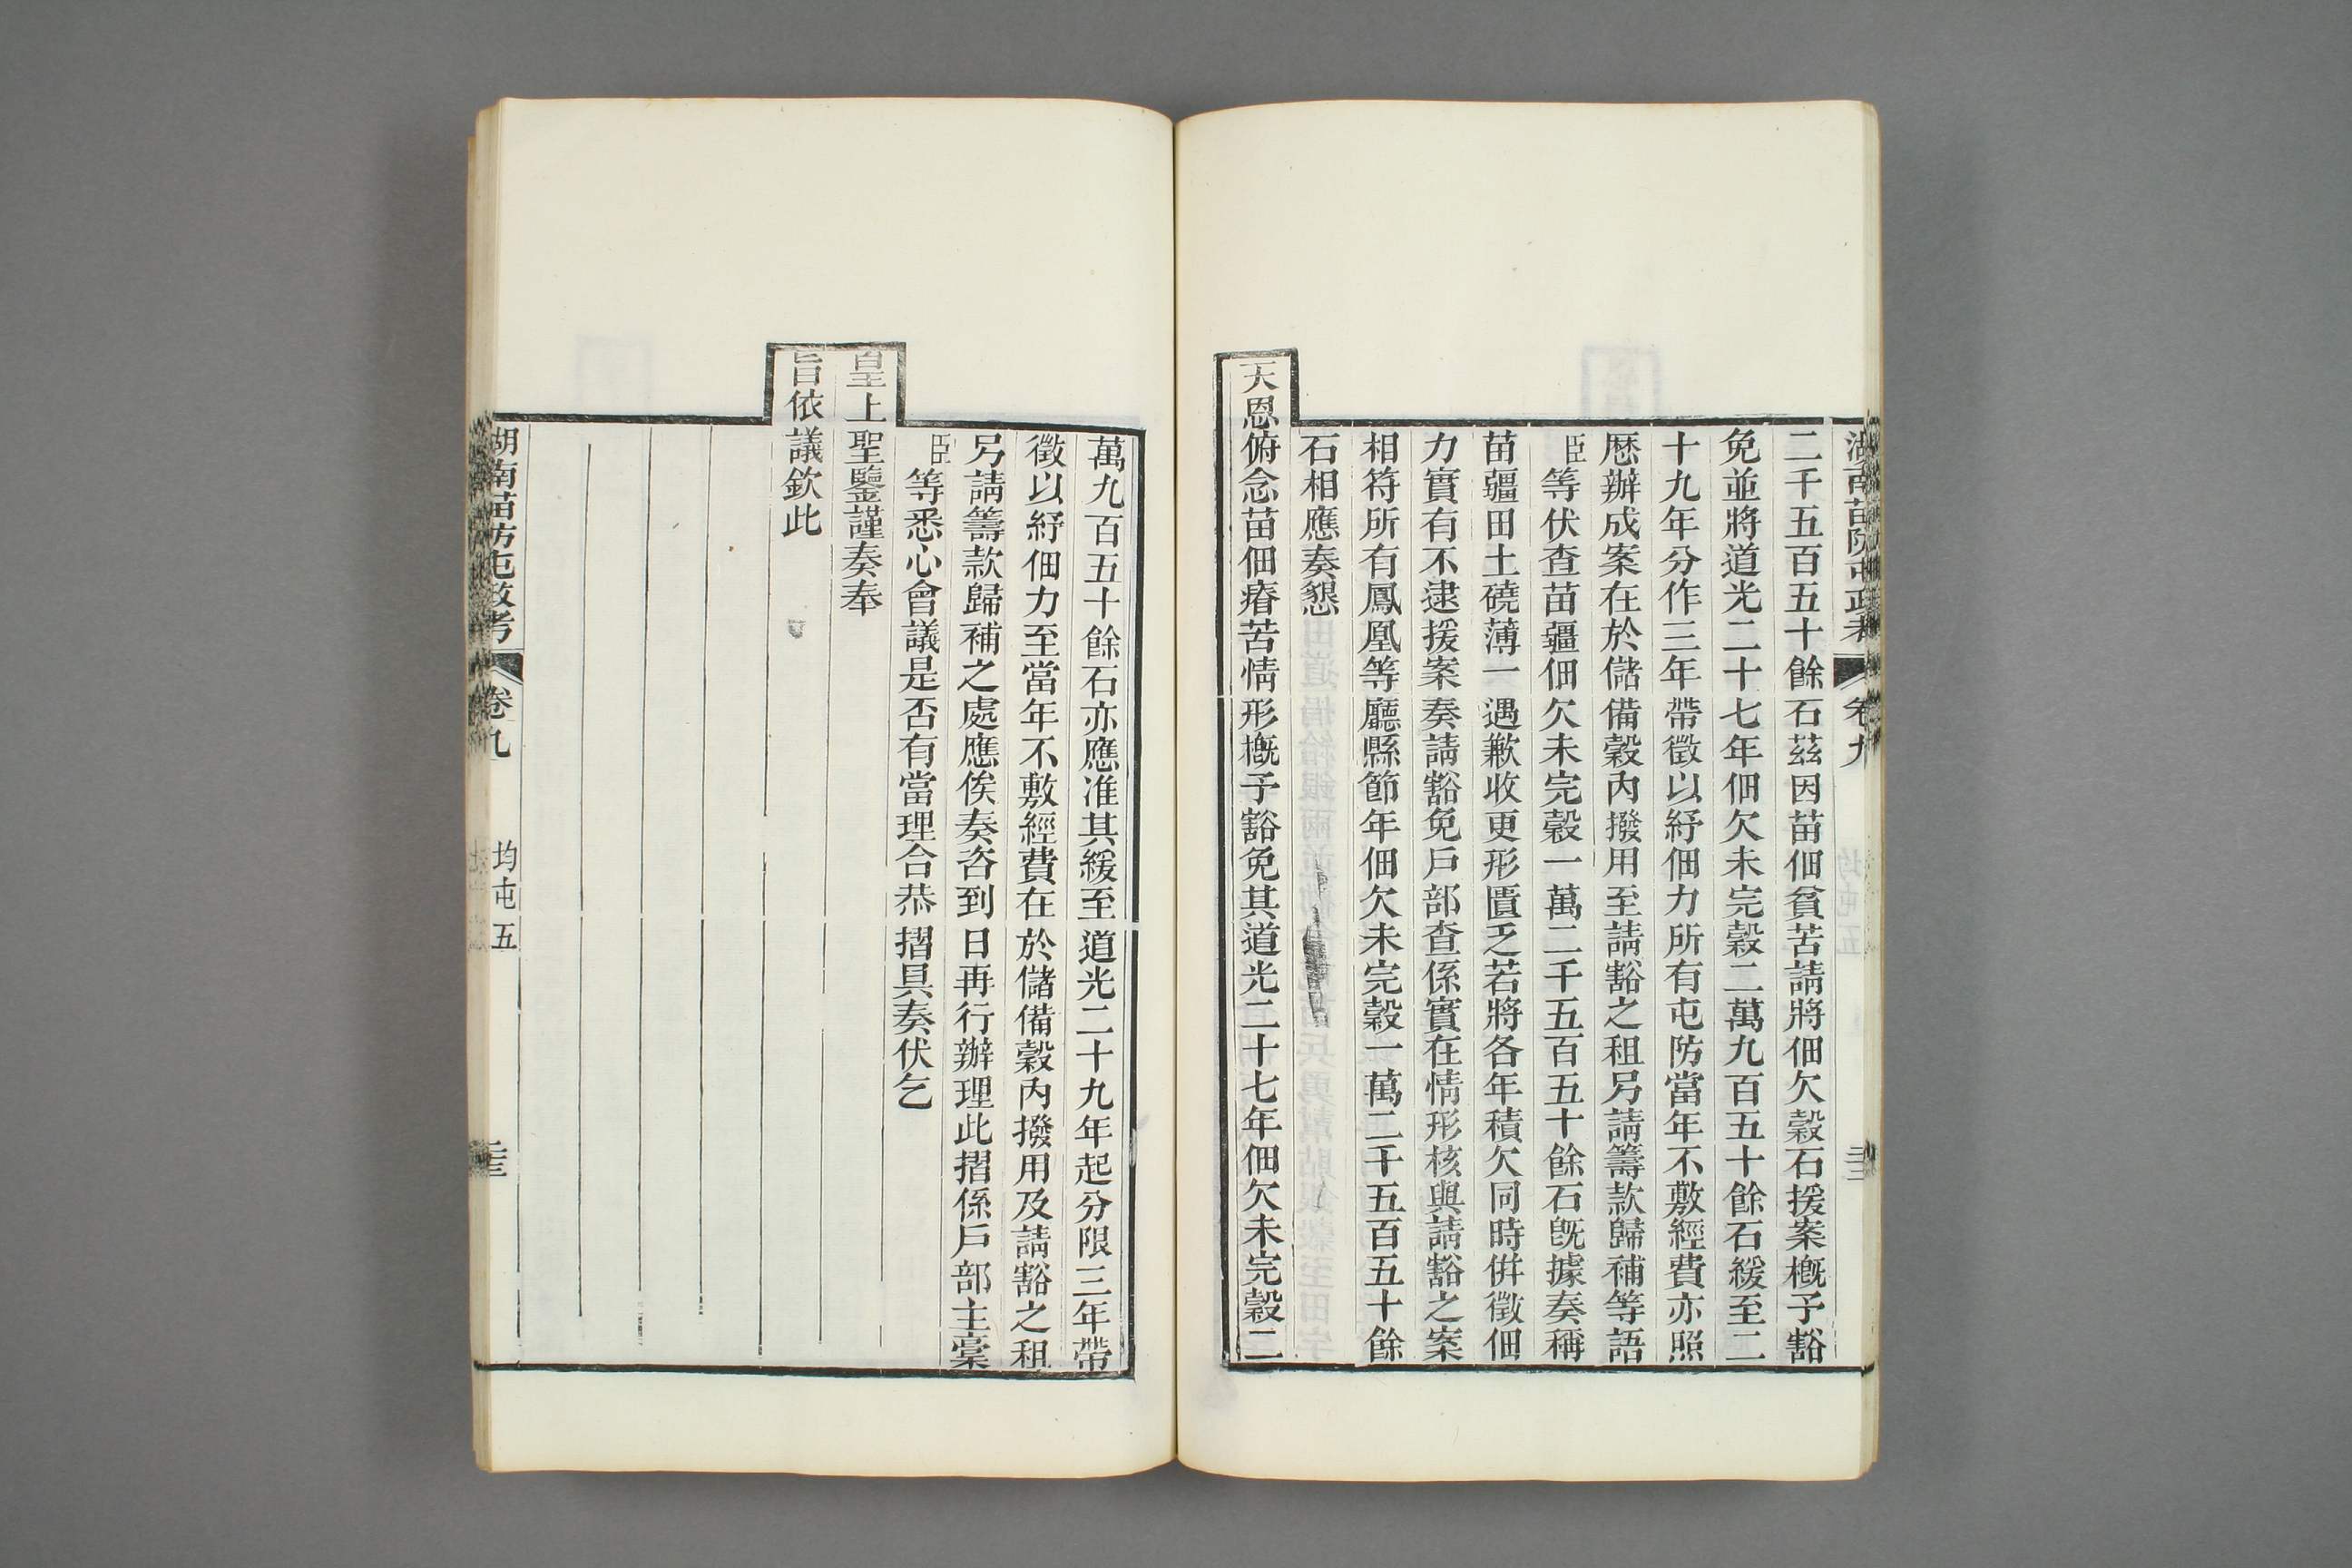 湖南苗防屯政考 卷九
二千五百五十餘石茲因苗佃貧苦請將佃欠穀石援案槪予豁
免並將道光二十七年佃欠未完穀二萬九百五十餘石緩至二
十九年分作三年帶徵以紓佃力所有屯防當年不敷經費亦照
歷辦成案在於儲備穀內撥用至請豁之租另請籌款歸補等語
臣等伏查苗疆佃欠未完穀一萬二千五百五十餘石旣據奏稱
苗疆田土磽薄一遇歉收更形匱乏若將各年積欠同時併徵佃
力實有不逮援案奏請豁免戶部查係實在情形核與請豁之案
相符所有鳳凰等廳縣節年佃欠未完穀一萬二千五百五十餘
石相應奏懇
天恩俯念苗佃瘠苦情形槪予豁免其道光二十七年佃欠未完穀二
萬九百五十餘石亦應准其緩至道光二十九年起分限三年帶
徵以紓佃力至當年不敷經費在於儲備穀內撥用及請豁之租
另請籌款歸補之處應俟奏咨到日再行辦理此摺係戶部主稾
臣等悉心會議是否有當理合恭摺具奏伏乞
皇上聖鑒謹奏奉
旨依議欽此
湖南苗防屯政考 卷九 均屯五